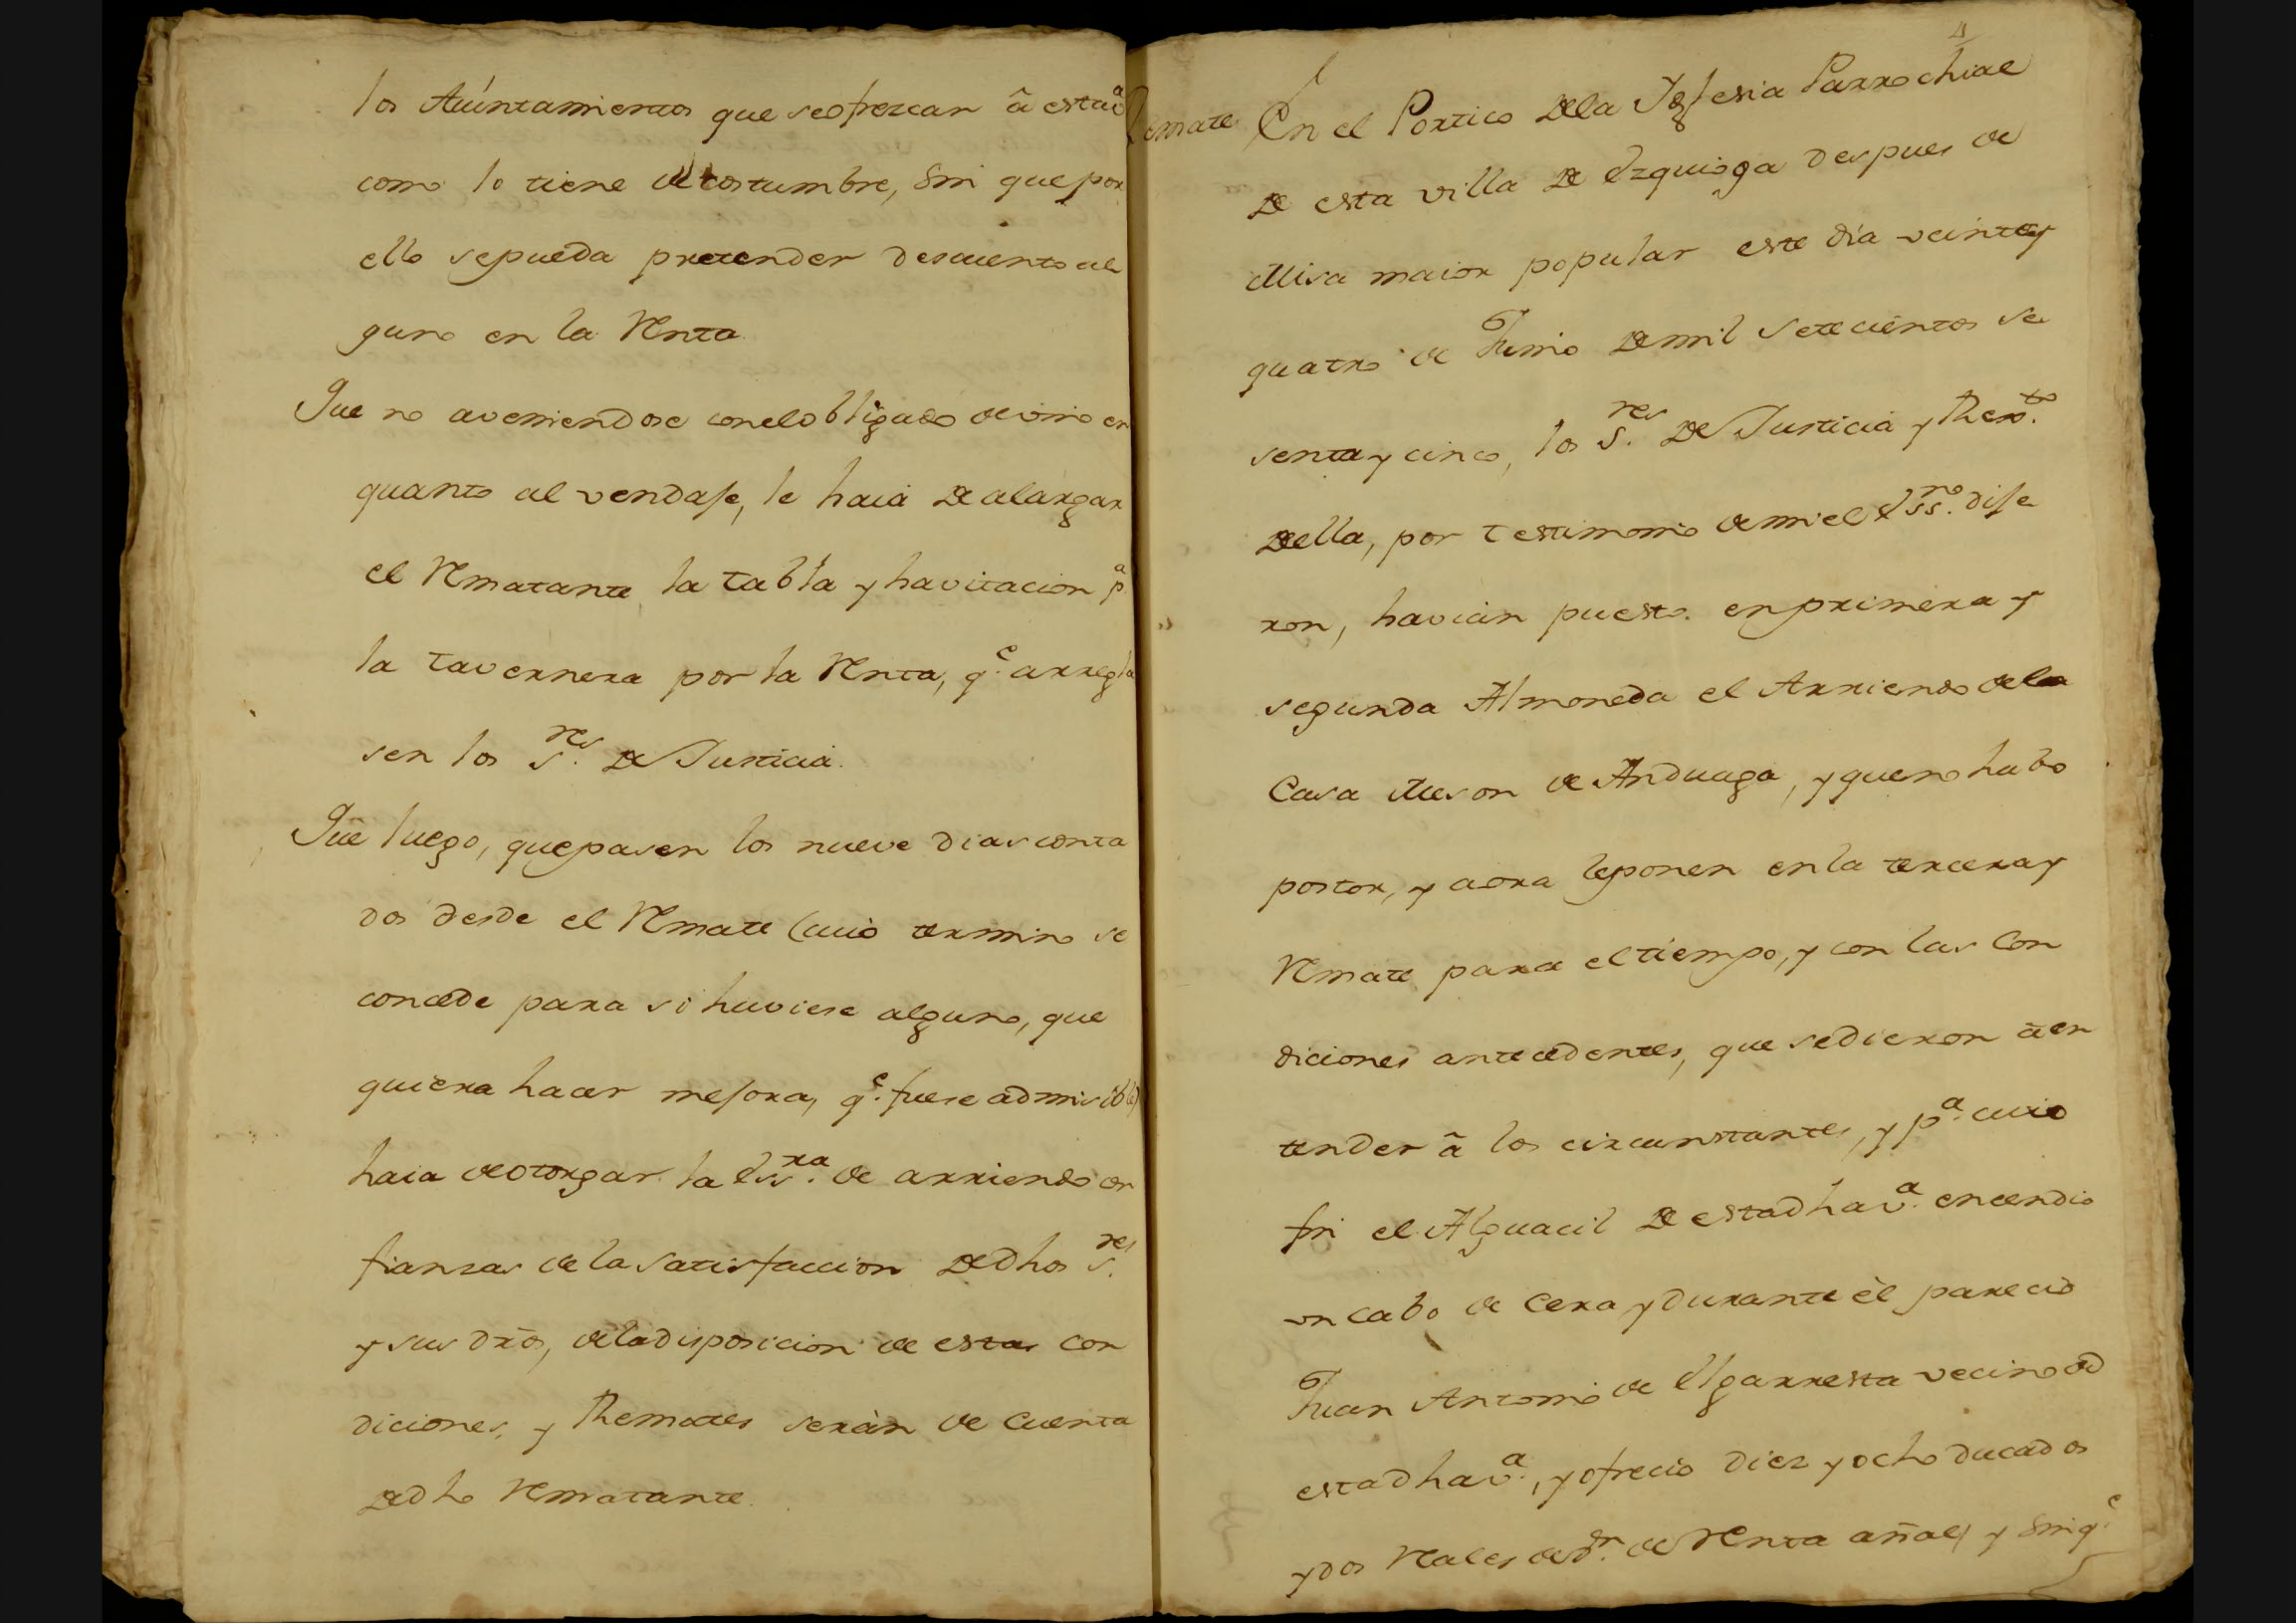 los Aiuntamientos que se ofrezcan â esta vª
como lo tiene de costumbre, Sin que por
ello se pueda pretender descuento al
guno en la Renta.
Que no aveniendose con el obligado de vino en
quanto al vendaje, le haia de alargar
el Rematante la tabla y havitacion pª
la tavernera por la Renta, q.e arregla
sen los S.res de Justicia.
Que luego, que pasen los nueve dias conta
dos desde el Remate (cuio termino se
concede para si huviese alguno, que
quiera hacer mejora, q.e fuese admisible)
haia de otorgar la Ess.ra de arriendo con
fianzas de la satisfaccion de dhos S.res
y sus dros, de la disposicion de estas con
diciones, y Remates seràn de cuenta
de dho Rematante.
4
Remate En el Portico de la Yglesia Parrochial
de esta villa de Ezquioga despues de
Misa maior popular este dia veinte y
quatro de Junio de mil Setecientos se
senta y cinco, los S.res de Justicia y Rexto.
de ella, por testimonio de mi el Ess.no dije
ron, havian puesto en primera y
segunda Almoneda el Arriendo de la
Casa Meson de Anduaga, y que no hubo
postor, y aora le ponen en la tercera y
Remate para el tiempo, y con las Con
diciones antecedentes, que se dieron à en
tender â los circunstantes, y pª. cuio
fin el Alguacil de esta dha vª. encendio
un cabo de Cera y durante èl parecio
Juan Antonio de Elgarresta vecino de
esta dha vª., y ofrecio diez y ocho ducados
y dos Reales de vn. de Renta añal, y Sin q.e